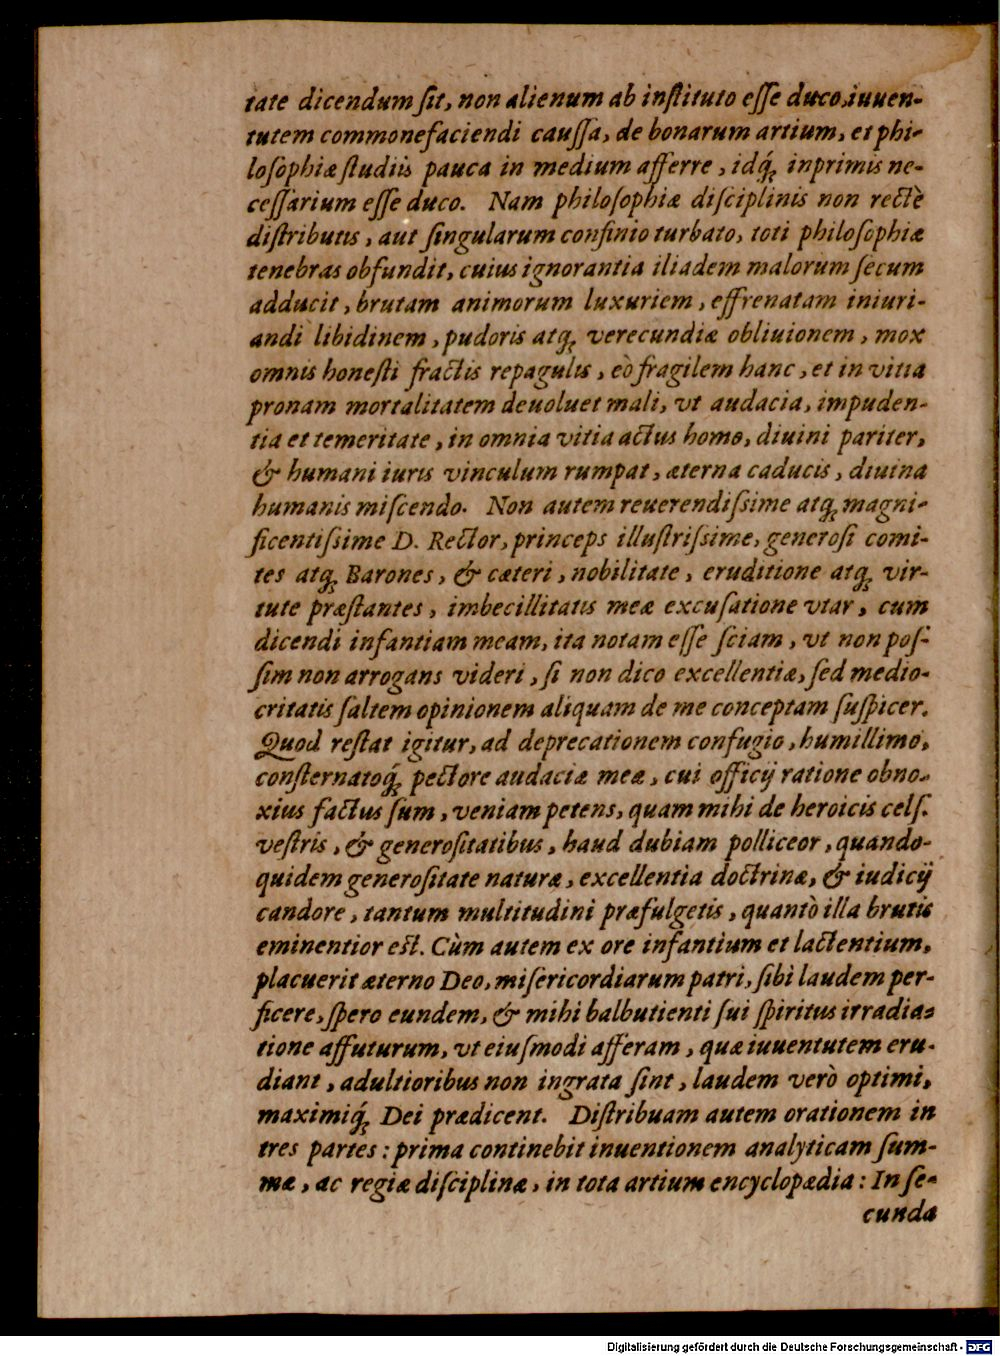 tate dicendum ſit, non alienum ab inſtituto eſſe duco, iuuen-
tutem commonefaciendi cauſſa, de bonarum artium, et phi-
loſophiæ ſtudiis pauca in medium afferre, idq́; inprimis ne-
ceſſarium eſſe duco. Nam philoſophiæ diſciplinis non rectè
diſtributis, aut ſingularum confinio turbato, toti philoſophiæ
tenebras obfundit, cuius ignorantia iliadem malorum ſecum
adducit, brutam animorum luxuriem, effrenatam iniuri-
andi libidinem, pudoris atq; verecundiæ obliuionem, mox
omnis honeſti fractis repagulis, eò fragilem hanc, et in vitia
pronam mortalitatem deuoluet mali, vt audacia, impuden-
tia et temeritate, in omnia vitia actus homo, diuini pariter,
& humani iuris vinculum rumpat, æterna caducis, diuina
humanis miſcendo. Non autem reuerendiſſime atq; magni-
ficentiſſime D. Rector, princeps illuſtriſſime, generoſi comi-
tes atq; Barones, & cæteri, nobilitate, eruditione atq; vir-
tute præſtantes, imbecillitatis meæ excuſatione vtar, cum
dicendi infantiam meam, ita notam eſſe ſciam, vt non poſ-
ſim non arrogans videri, ſi non dico excellentiæ, ſed medio-
critatis ſaltem opinionem aliquam de me conceptam ſuſpicer.
Quod reſtat igitur, ad deprecationem confugio, humillimo,
conſternatoq́; pectore audaciæ meæ, cui officij ratione obno-
xius factus ſum, veniam petens, quam mihi de heroicis celſ.
veſtris, & generoſitatibus, haud dubiam polliceor, quando-
quidem generoſitate naturæ, excellentia doctrinæ, & iudicij
candore, tantum multitudini præfulgetis, quantò illa brutis
eminentior eſt. Cùm autem ex ore infantium et lactentium,
placuerit æterno Deo, miſericordiarum patri, ſibi laudem per-
ficere, ſpero eundem, & mihi balbutienti ſui ſpiritus irradia-
tione affuturum, vt eiuſmodi afferam, quæ iuuentutem eru-
diant, adultioribus non ingrata ſint, laudem verò optimi,
maximiq́; Dei prædicent. Diſtribuam autem orationem in
tres partes: prima continebit inuentionem analyticam ſum-
mæ, ac regiæ diſciplinæ, in tota artium encyclopædia: In ſe-
cunda
Digitalisierung gefördert durch die Deutsche Forschungsgemeinschaft - DFG